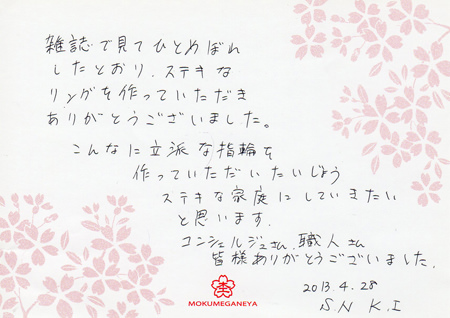 雑誌で見てひとめぼれ
したとおり、ステキな
リングを作っていただき
ありがとうございました。
こんなに立派な指輪を
作っていただいたいじょう
ステキな家庭にしていきたい
と思います。
コンシェルジュさん、職人さん
皆様ありがとうございました。
2013.4.28
S.N K.I
MOKUMEGANEYA